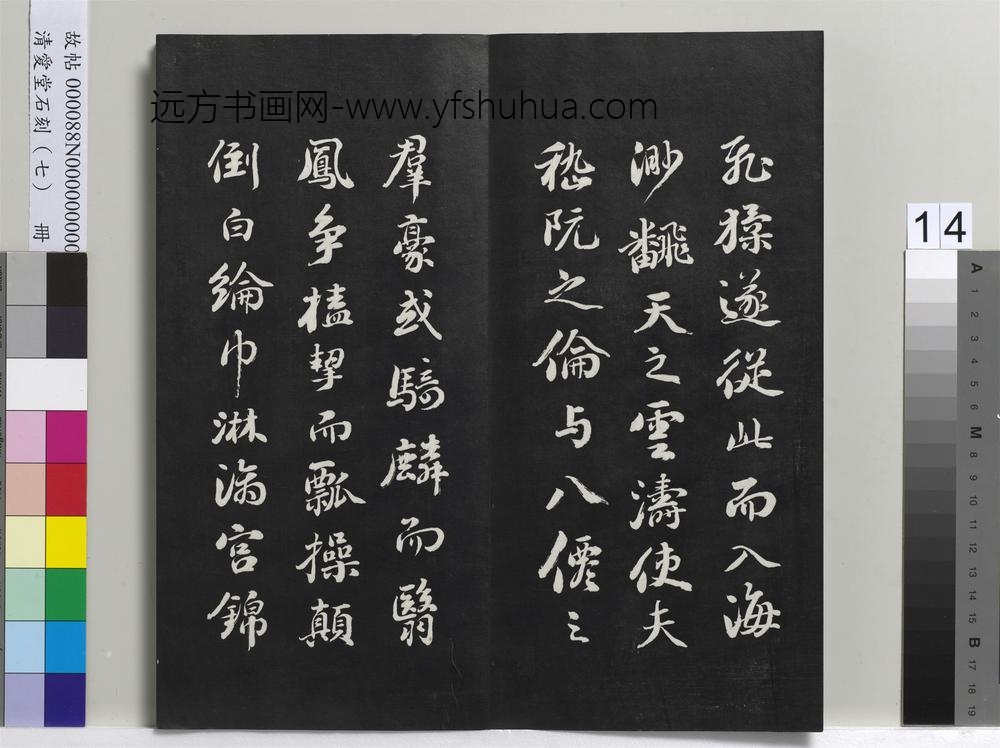 故帖 000088N000000000
清愛堂石刻（七） 冊
远方书画网-www.yfshuhua.com
飛猱遂從此而入海
渺飜天之雲濤使夫
嵇阮之倫与八僊之
羣豪或騎麟而翳
鳳争榼挈而瓢操顛
倒白綸巾淋漓宮錦
14
A 1 2 3 4 5 6 M 8 9 10 11 12 13 14 15 B 17 18 19